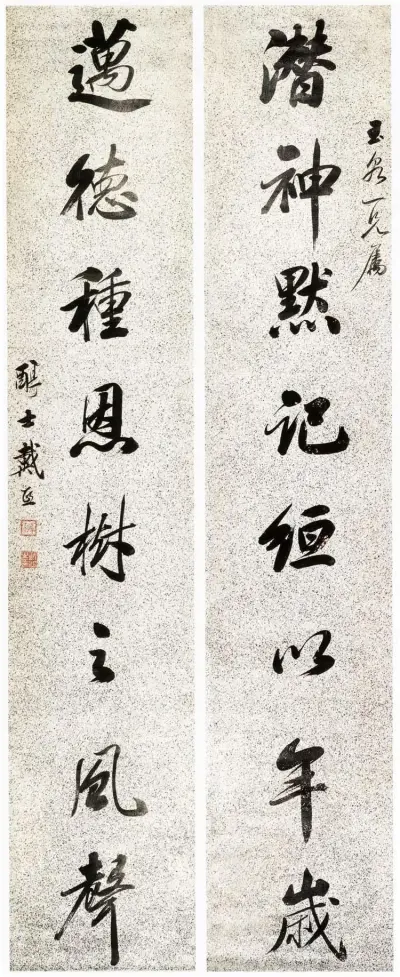 玉泉一兄屬
潛神默記絙以年歲
邁德種恩樹之風聲
醇士戴熙